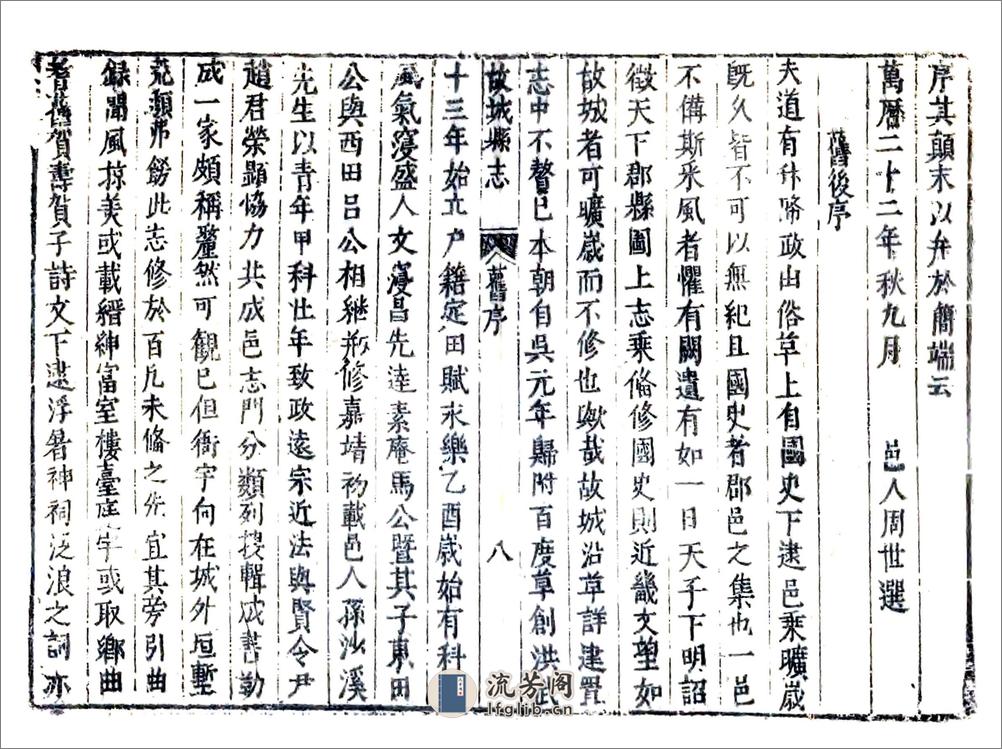 序其顛末以弁於簡端云
萬曆二十二年秋九月 邑人周世選
舊後序
夫道有升降政由俗革上自國史下逮邑乘曠歲
既久皆不可以無紀且國史者郡邑之集也一邑
不備斯采風者懼有闕遺有如一日天子下明詔
徵天下郡縣圖上志乘俻修國史則近畿文望如
故城者可曠歲而不修也歟哉故城沿革詳建置
志中不贅已本朝自吳元年歸附百度草創洪武
故城縣志 舊序 八
十三年始立户籍定田賦永樂乙酉歲始有科
風氣寖盛人文寖昌先達素菴馬公暨其子東田
公與西田呂公相繼 修嘉靖初載邑人孫沙溪
先生以青年甲科壯年致政遠宗近法與賢令尹
趙君榮顯恊力共成邑志門分類列搜輯成書勒
成一家頗稱釐然可觀已但衙宇向在城外垣塹
荒頽弗餙此志修於百凡未俻之先宜其旁引曲
錄聞風掠美或載縉紳富室樓臺庭宇或取鄉曲
耆舊賀壽賀子詩文下逮浮暑神祠泛浪之詞亦
流芳阁
lfglib.cn